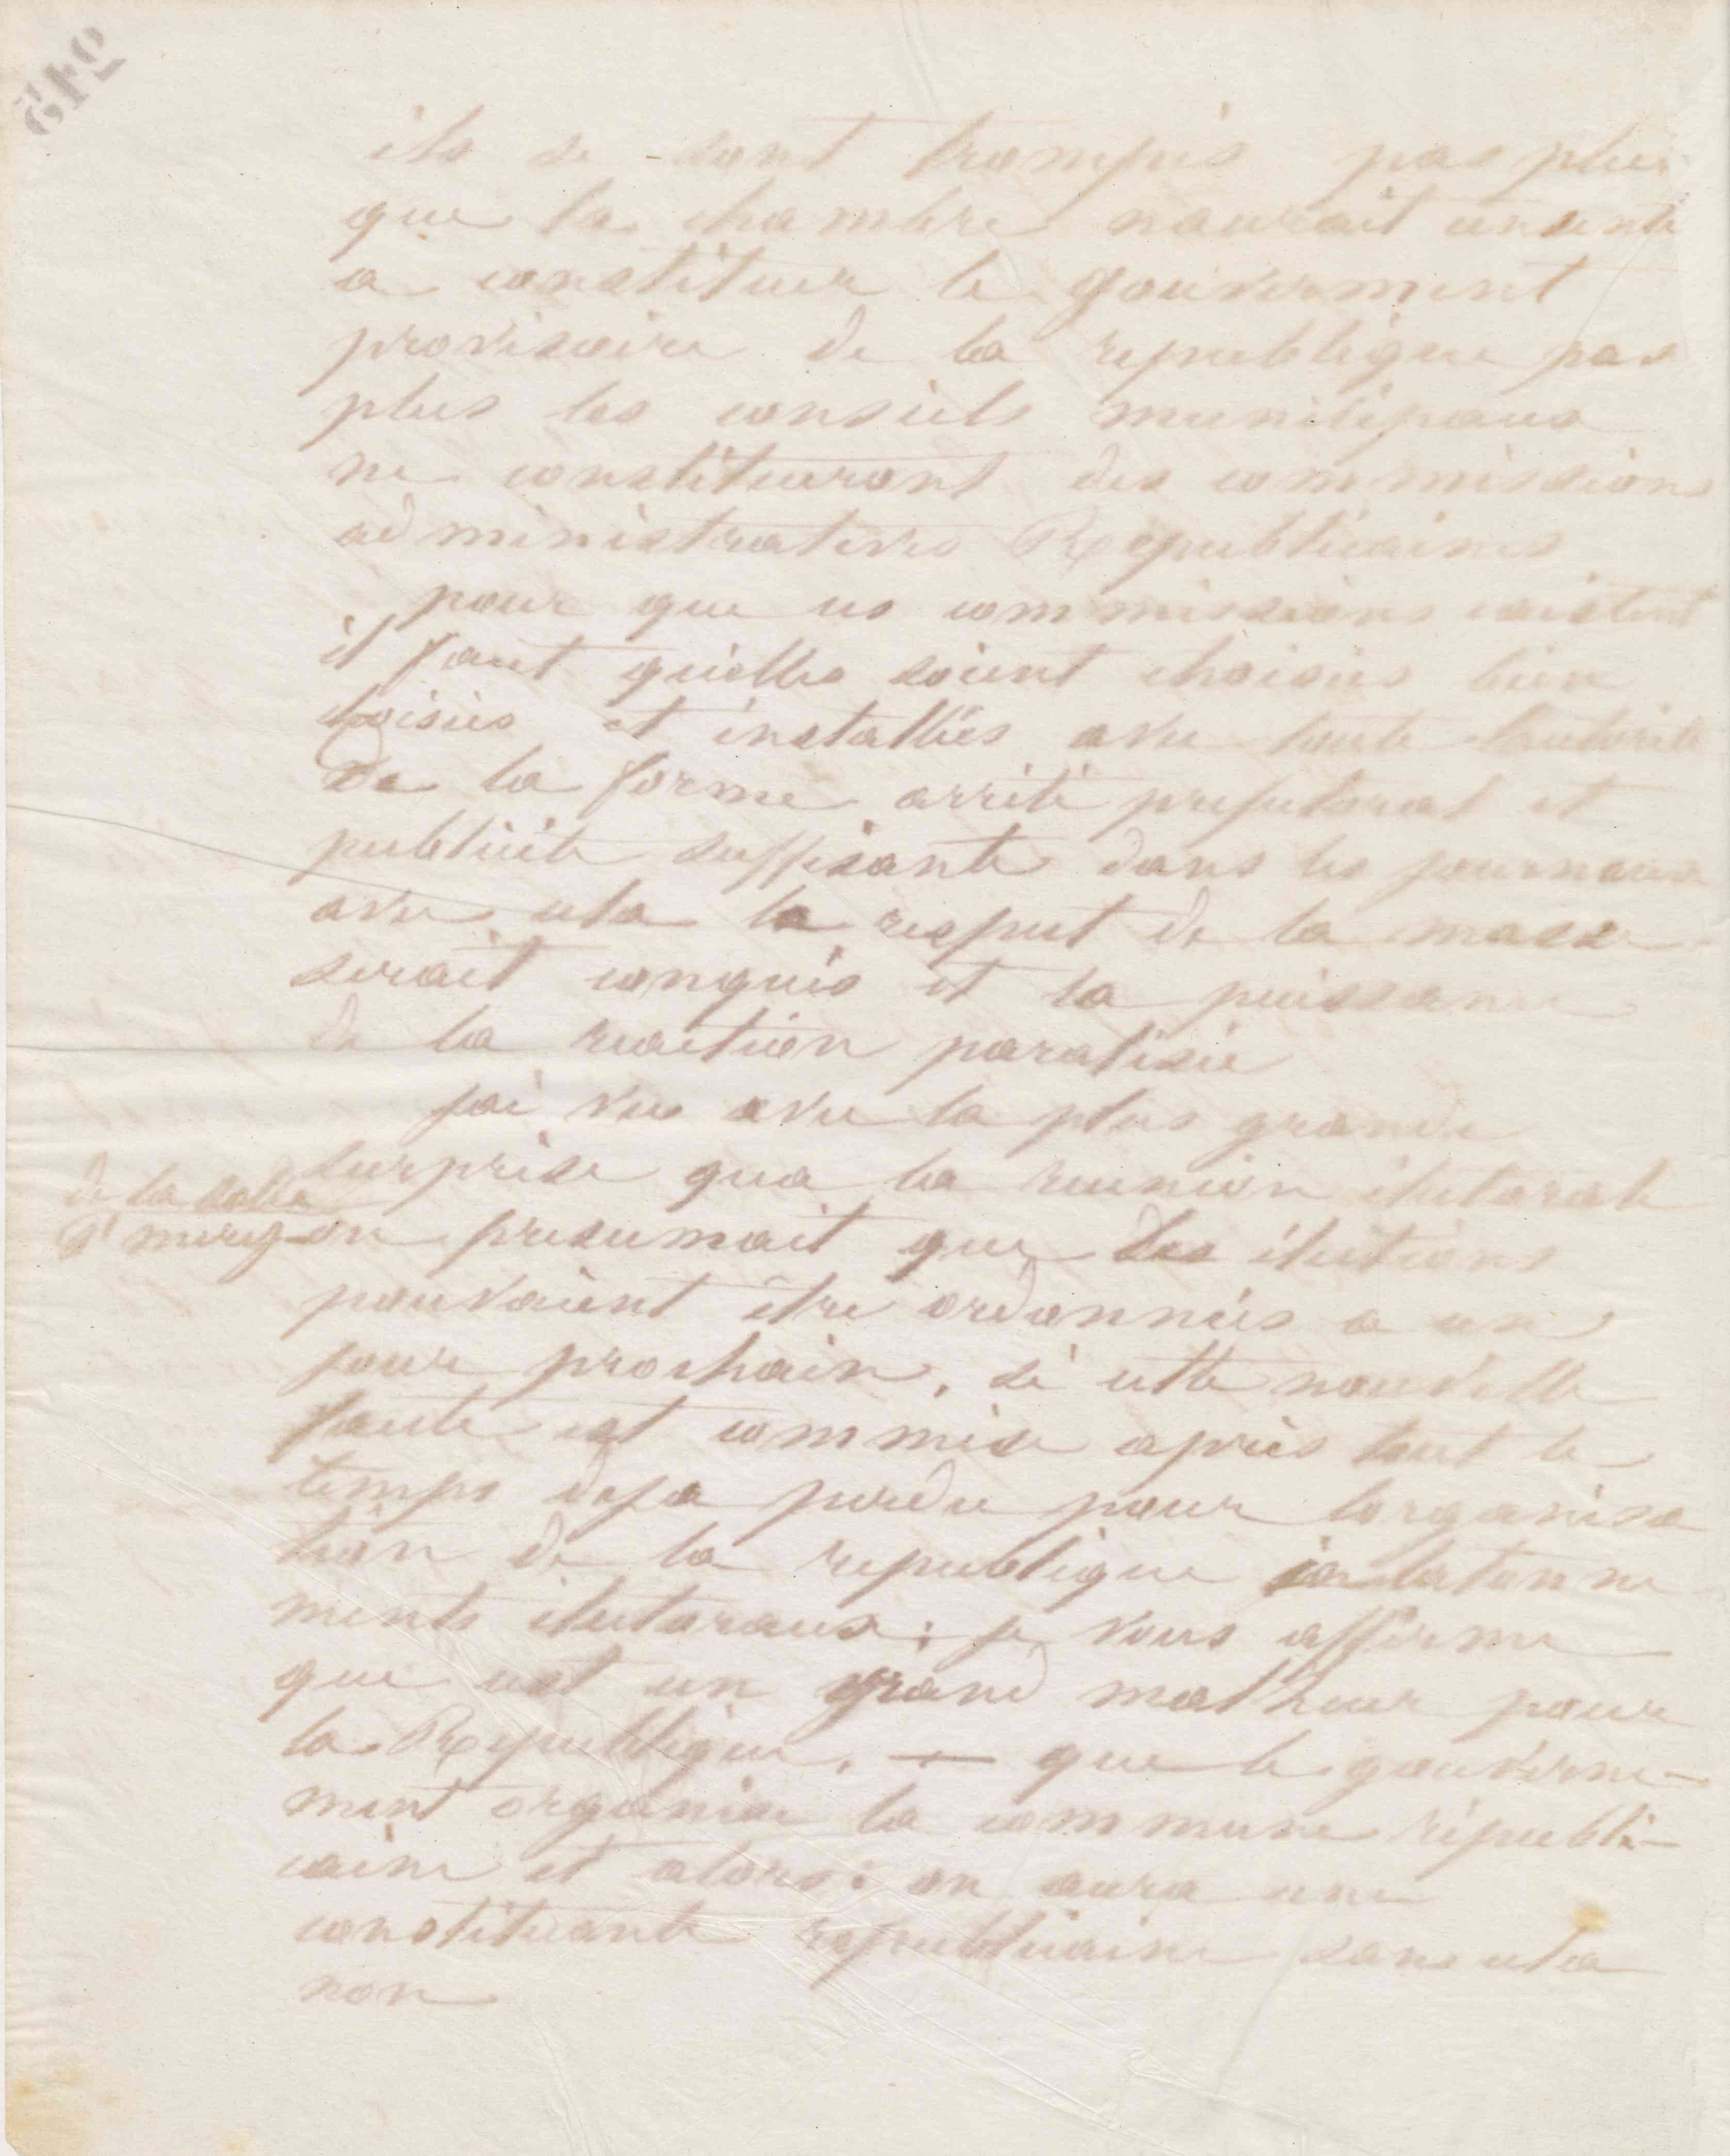 ils se sont trompés pas plus
que la chambre naurait consenti
a constituer le gouvernement
provisoire de la republique pas
plus les conseils municipaux
ne constitueront des commissions
administratives Republicaines
pour que ces commissions existent
il faut quelles soient choisies bien
choisies et installées avec toute lautorité
de la forme arrêté prefectoral et
publicité suffisante dans les journaux
avec cela le respect de la masse
serait conquis et la puissance
de la reaction paralisée
jai vu avec la plus grande
surprise qua la reunion électorale
de la salle
on presumait que des élections
pouvaient être ordonnées a un
jour prochain, si cette nouvelle
faute est commise après tout le
temps deja perdu pour lorganisa
tion de la republique
ments électoraux : je vous affirme
que cest un grand malheur pour
la Republique. — que le gouverne-
ment organise la commune républi-
caine et alors : on aura une
constituante republicaine sans cela
non